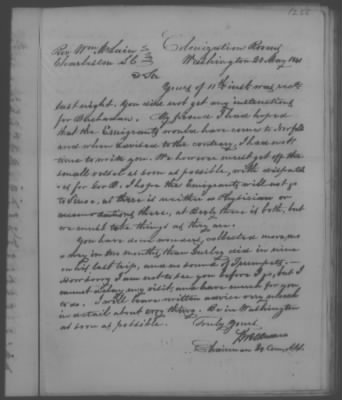 Rev. Wm McLain
Charleston S C
Colonization Rooms
Washington 20 May 1841
D Sir
Yours of 11th inst was recd
last night. You did not get any instructions
for Buchanan. My friend I had hoped
that the Emigrants would have come to Norfolk
and when advised to the contrary, I had not
time to write you. We however must get off the
small vessel as soon as possible, with dispatch-
es for Gov B. I hope the Emigrants will not go
to Sinoe, as there is neither a Physician or
accommodations there, at Bexly there is both, but
we must take things as they are.
You have done wonders, collected more, mo-
ney in two months, than Gurley did in nine
on his last trip, and no sound of Trumpets. —
How sorry I am not to see you before I go, but I
cannot delay my visit, and have much for you
to do. I will leave written advice very much
in detail about every thing. Be in Washington
as soon as possible.
Truly Yours
Chairman Ex Com.